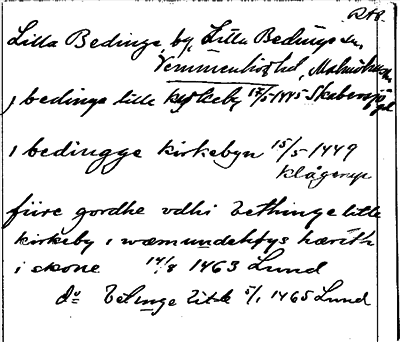 RAP.
Lilla Bedinge, by, Lilla Bedinge sn,
Vemmenhögs hd, Malmöhus
j bedinge lille kyrkeby 17/5 1445 Skabersjö
j bedingge kirkebyn 15/5 1449
Klågerup
fiire gordhe vdhi Bethinge litle
kirkeby i wæmundehøys hæreth
i skone 14/8 1463 Lund
do Betinge litle 5/1 1465 Lund